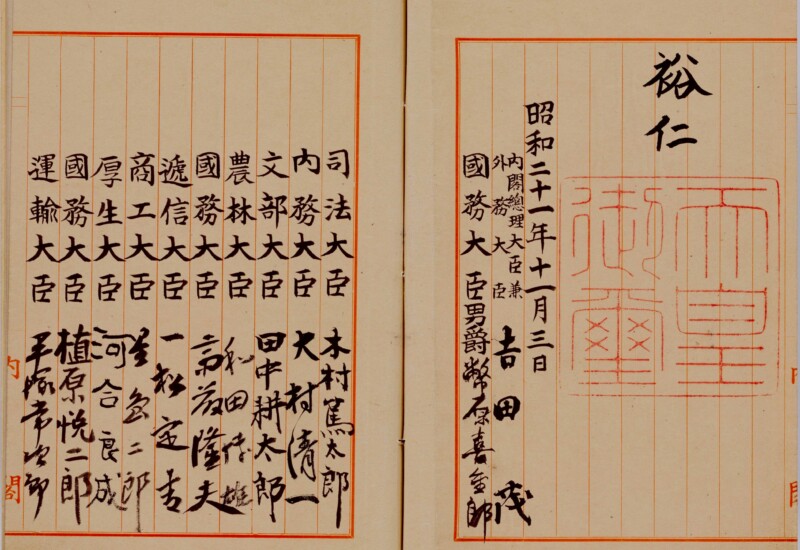 裕仁
天皇御璽
昭和二十一年十一月三日
内閣總理大臣兼
外務大臣 吉田茂
國務大臣 男爵幣原喜重郎
司法大臣 木村篤太郎
内務大臣 大村清一
文部大臣 田中耕太郎
農林大臣 和田博雄
國務大臣 斎藤隆夫
遞信大臣 一松定吉
商工大臣 星島二郎
厚生大臣 河合良成
國務大臣 植原悦二郎
運輸大臣 平塚常次郎
内閣